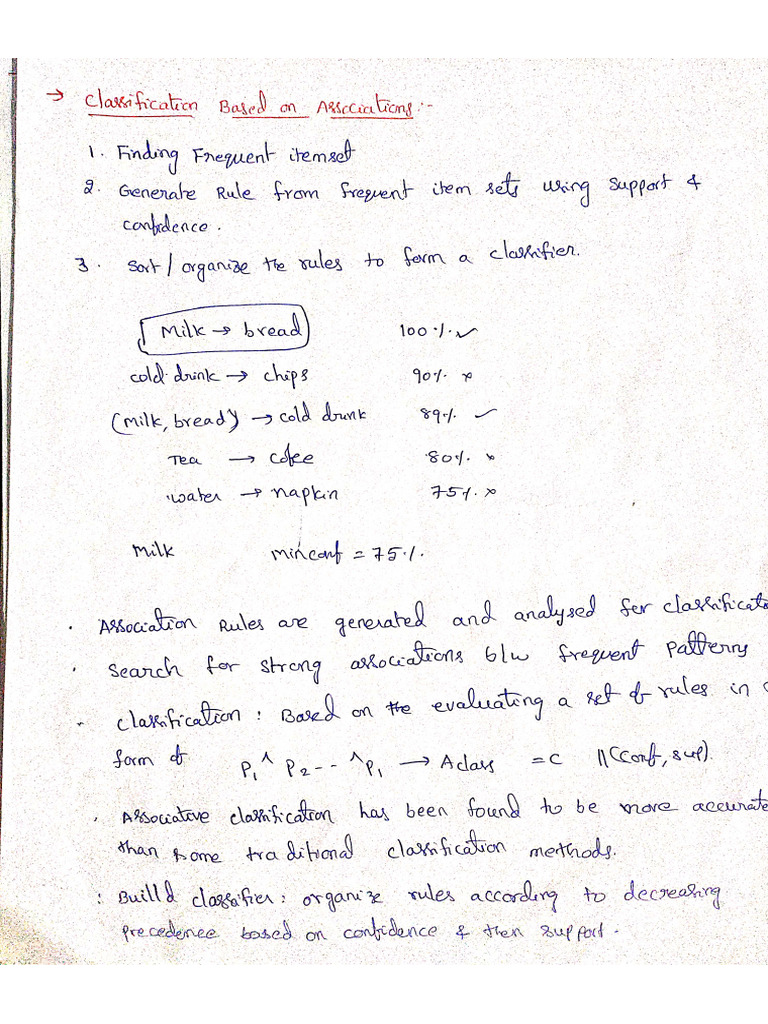 → Classification Based on Associations:-
1. Finding Frequent itemset
2. Generate Rule from frequent item sets using support &
confidence.
3. Sort/organize the rules to form a classifier.
Milk → bread 100% ✓
cold drink → chips 90% ×
(milk, bread) → cold drunk 89% ✓
Tea → cofee 80% ×
water → napkin 75% ×
Milk minconf = 75%.
• Association Rules are generated and analysed for classificat
• Search for strong associations b/w frequent patterns
- Classification: Based on the evaluating a set of rules in
form of P₁ ^ P₂ -- ^ P₁ → Aclass = C ||(conf, sup).
• Associative classification has been found to be more accurate
than some traditional classification methods.
: Builld classifier: organize rules according to decreasing
precedence based on confidence & then support.